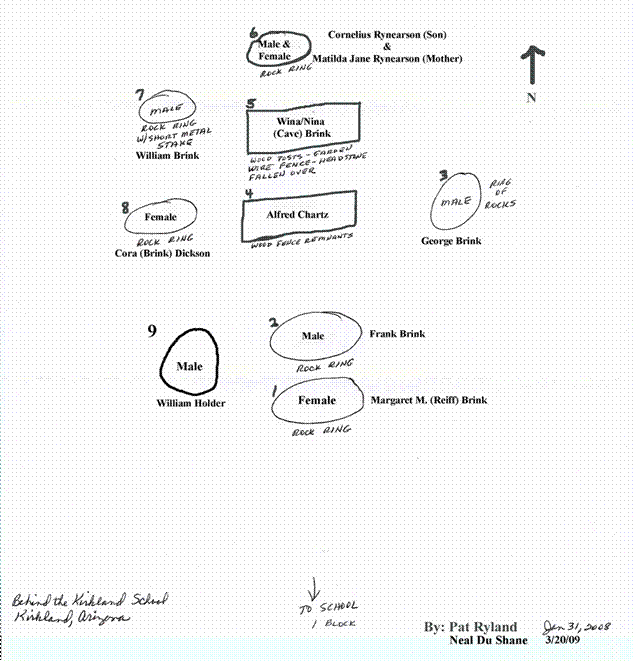 6
Male &
Female
ROCK RING
Cornelius Rynearson (Son)
&
Matilda Jane Rynearson (Mother)
N
7
MALE
ROCK RING
W/SHORT METAL
STAKE
William Brink
5
Wina/Nina
(Cave) Brink
WOOD POSTS - GARDEN
WIRE FENCE - HEADSTONE
FALLEN OVER
3
MALE
RING
OF
ROCKS
George Brink
8
Female
ROCK RING
Cora (Brink) Dickson
4
Alfred Chartz
WOOD FENCE REMNANTS
9
Male
William Holder
2
Male
ROCK RING
Frank Brink
1
Female
ROCK RING
Margaret M. (Reiff) Brink
Behind the Kirkland School
Kirkland, Arizona
TO SCHOOL
1 BLOCK
By: Pat Ryland Jan 31, 2008
Neal Du Shane 3/20/09